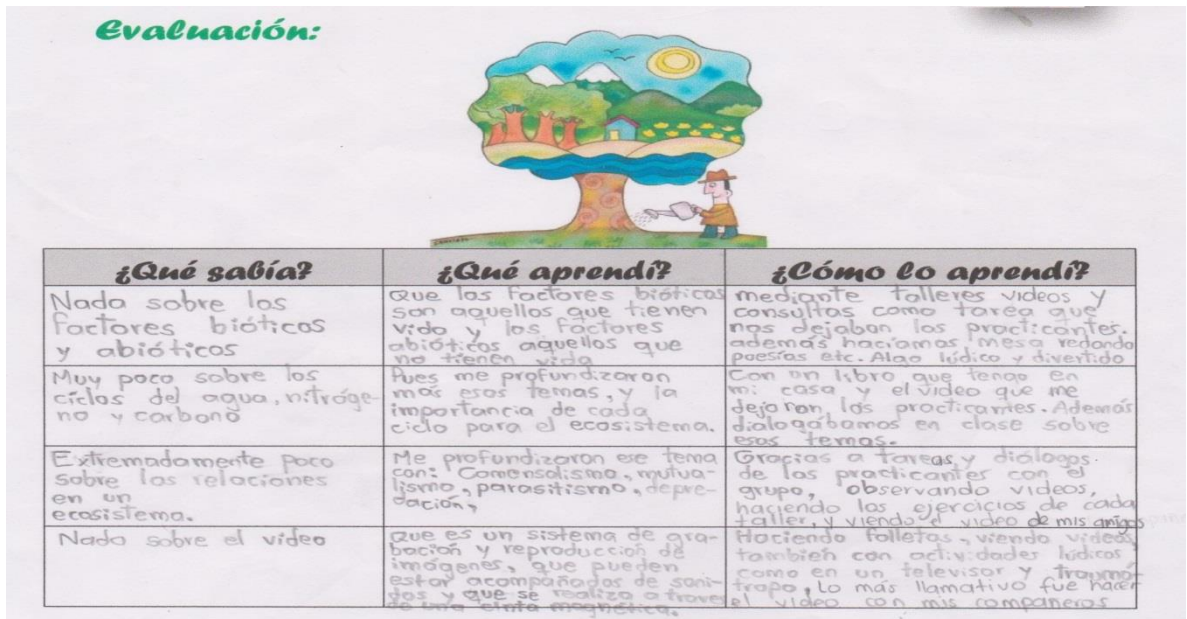 Evaluación:
¿Qué sabía?
¿Qué aprendí?
¿Cómo lo aprendí?
Nada sobre los
factores bióticos
y abióticos
Que los factores bióticos
son aquellos que tienen
vida y los factores
abióticos aquellos que
no tienen vida
mediante talleres videos y
consultas como tarea que
nos dejaban los practicantes.
además hacíamos mesa redonda
poesías etc. Algo lúdico y divertido
Muy poco sobre los
ciclos del agua, nitróge-
no y carbono
Pues me profundizaron
más esos temas, y la
importancia de cada
ciclo para el ecosistema.
Con un libro que tengo en
mi casa y el video que me
dejaron los practicantes. Además
dialogábamos en clase sobre
esos temas.
Extremadamente poco
sobre las relaciones
en un
ecosistema.
Me profundizaron ese tema
con: Comensalismo, mutua-
lismo, parasitismo, depre-
dación,
Gracias a tareas y diálogos
de los practicantes con el
grupo, observando videos,
haciendo los ejercicios de cada
taller, y viendo el video de mis amigos
Nada sobre el video
Que es un sistema de gra-
bación y reproducción de
imágenes, que pueden
estar acompañadas de soni-
dos y que se realiza a traves
de una cinta magnética.
Haciendo folletos, viendo videos,
también con actividades lúdicas
como en un televisor y traumá-
tropo, Lo más llamativo fue hacer
el video con mis compañeros